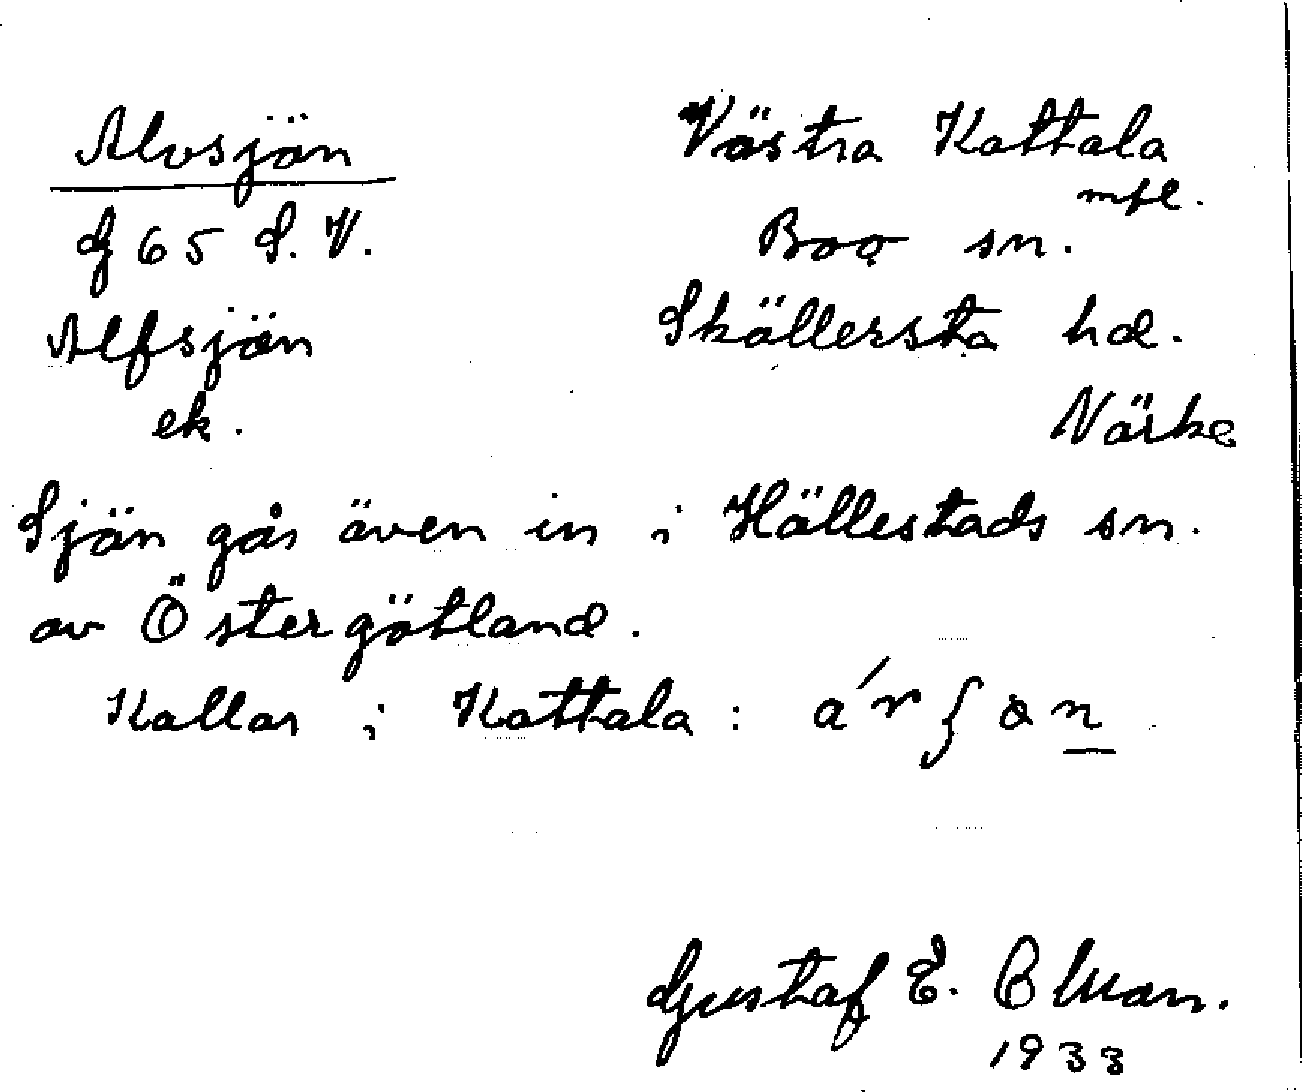 Alvsjön
Västra Kattala
mfl.
G 65 S. V.
Boo sn.
Alfsjön
Skällersta hd.
ek.
Närke
Sjön går även in i Hällestads sn.
av Östergötland.
Kallas i Kattala:
Gustaf E. Elman.
1933